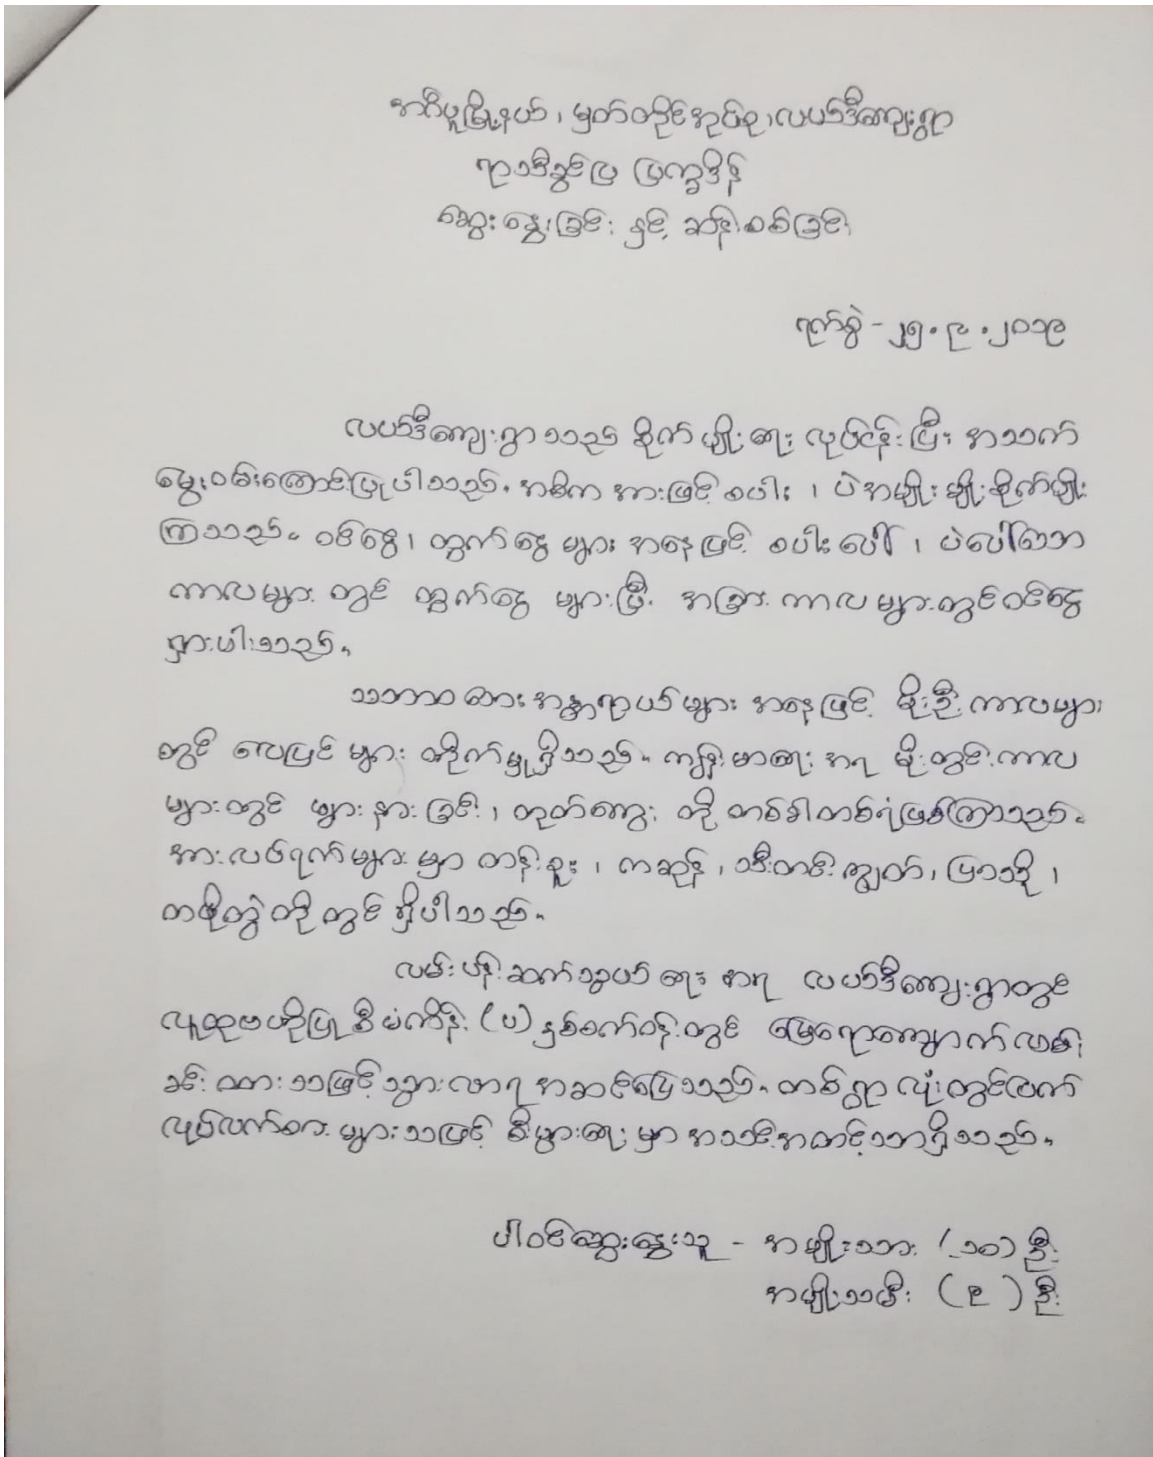 အင်္ဂပူမြို့နယ်၊ မှတ်တိုင်အုပ်စု၊ လယ်ဒီကျေးရွာ
ရာသီခွင်ပြ ပြက္ခဒိန်
ဆွေးနွေးခြင်း နှင့် ဆန်းစစ်ခြင်း
ရက်စွဲ - ၂၅.၉.၂၀၁၉
လယ်ဒီကျေးရွာသည် စိုက်ပျိုးရေး လုပ်ငန်းပြီး အသက်
မွေးဝမ်းကြောင်းပြုပါသည်။ အဓိက အားဖြင့် စပါး ၊ ပဲအမျိုးမျိုးစိုက်ပျိုး
ကြသည်။ ဝင်ငွေ၊ ထွက်ငွေ များ အနေဖြင့် စပါးပေါ် ၊ ပဲပေါ်သော
ကာလများ တွင် ထွက်ငွေ များပြီး အခြားကာလများတွင်ဝင်ငွေ
ရှားပါးသည်။
သဘာဝဘေးအန္တရာယ်များ အနေဖြင့် မိုးဦးကာလများ
တွင် လေပြင်းများ တိုက်မှုရှိသည်။ ကျန်းမာရေး အရ မိုးတွင်းကာလ
များတွင် ဖျားနာခြင်း ၊ တုတ်ကွေး တို့ တစ်ခါတစ်ရံဖြစ်ကြသည်။
အားလပ်ရက်များမှာ တန်ခူး ၊ ကဆုန် ၊ သီတင်းကျွတ် ၊ ပြာသို ၊
တပို့တွဲတို့တွင် ရှိပါသည်။
လမ်းပန်းဆက်သွယ်ရေး အရ လယ်ဒီကျေးရွာတွင်
လူထုဗဟိုပြု စီမံကိန်း (ပ) နှစ်စက်ဝန်းတွင် မြေရောကျောက်လမ်း
ခင်းထားသဖြင့်သွားလာရ အဆင်ပြေသည်။ တစ်ရွာလုံးတွင်လက်
လုပ်လက်စား များသဖြင့် စီးပွားရေးမှာ အသင့်အတင့်သာရှိသည်။
ပါဝင်ဆွေးနွေးသူ - အမျိုးသား (၁၀) ဦး
အမျိုးသမီး (၉) ဦး